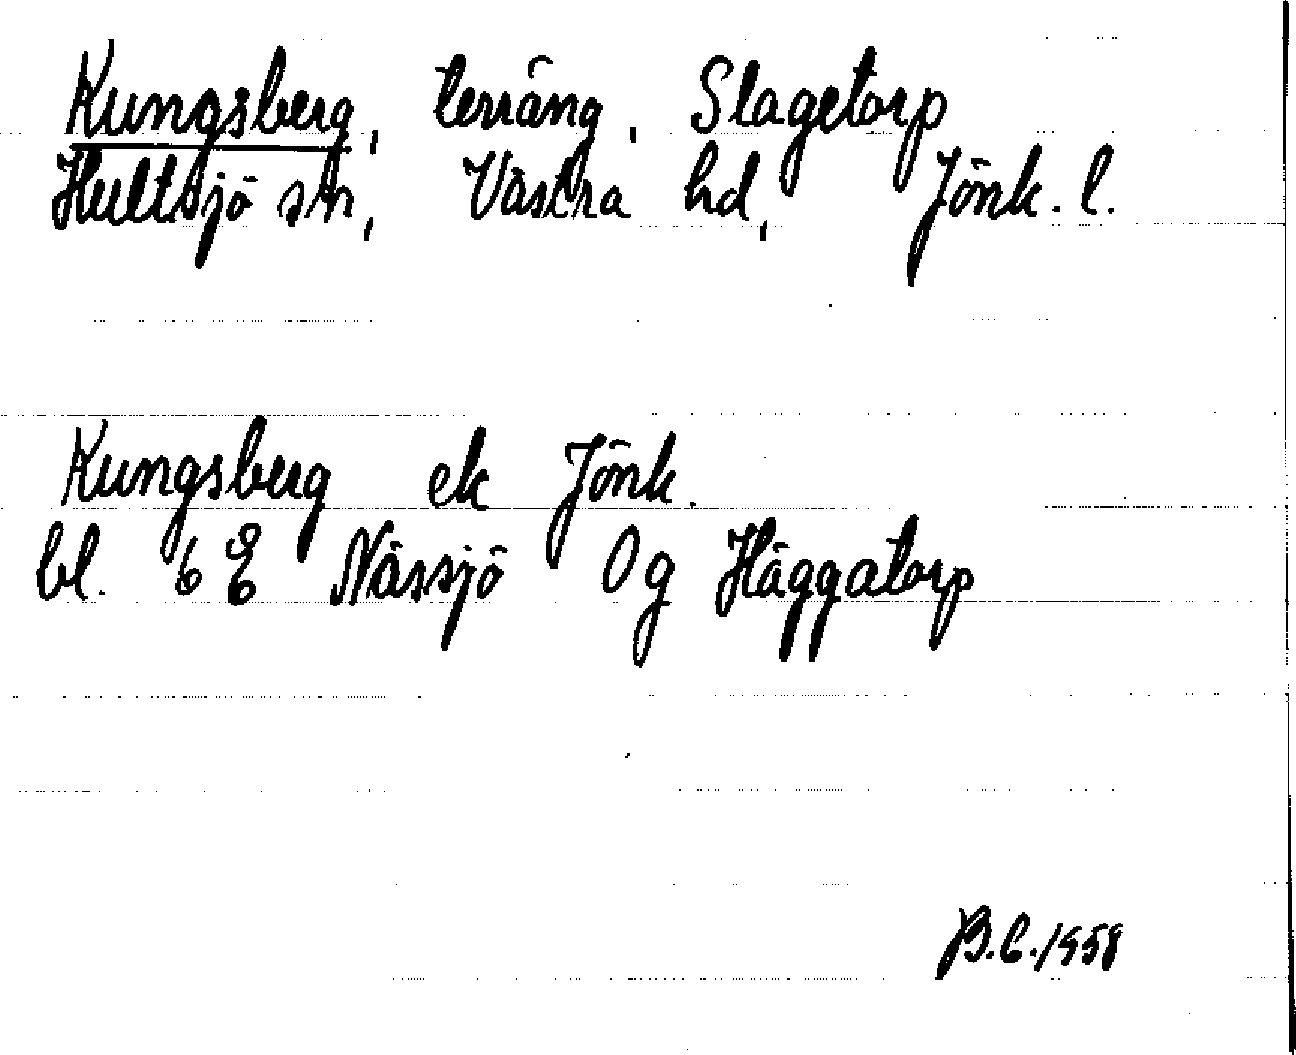 Kungsberg, terräng, Slagetorp
Hultsjö sn, Västra hd, Jönk. l.
Kungsberg ek Jönk.
bl. 6 E Nässjö 0 g Häggatorp
B.C. 1958